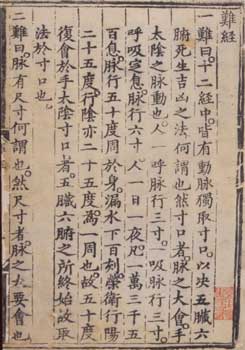 難經
一難曰。十二經中。皆有動脉。獨取寸口。以決五臟六
腑死生吉凶之法。何謂也。然寸口者。脉之大會。手
太陰之脉動也。人一呼脉行三寸。一吸脉行三寸。
呼吸定息。脉行六寸。人一日一夜。凡一萬三千五
百息。脉行五十度。周於身。漏水下百刻。榮衛行陽
二十五度。行陰亦二十五度。爲一周也。故五十度
復會於手太陰寸口者。五臟六腑之所終始。故取
法於寸口也。
二難曰。脉有尺寸。何謂也。然尺寸者。脉之大要會也。